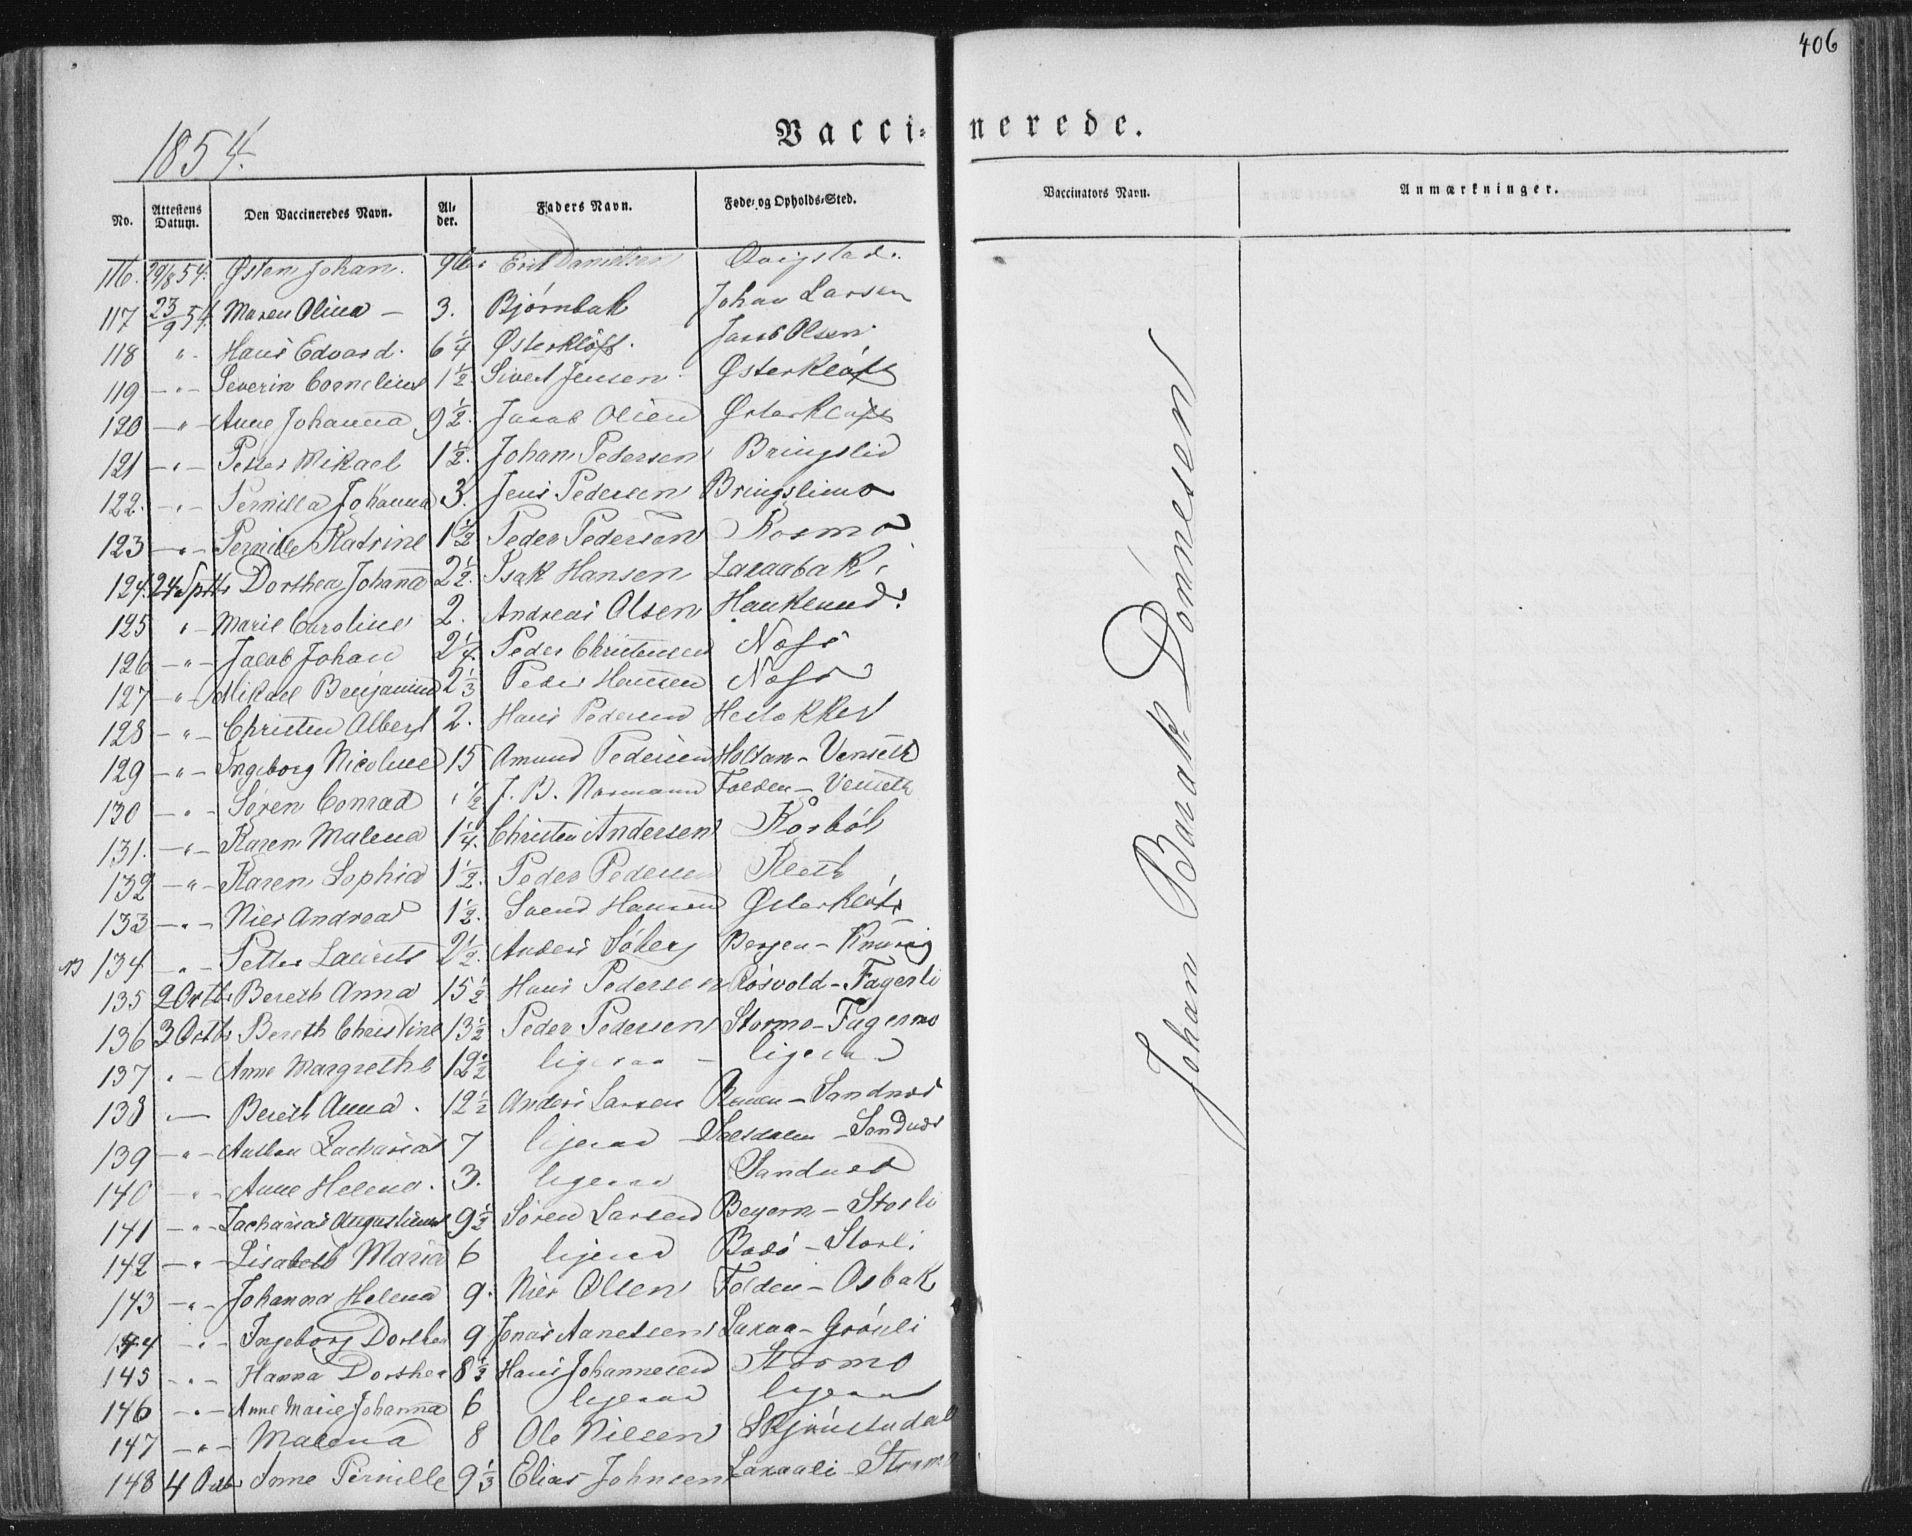 406
Vaccinerede.
1854.
No. Attestens Datum. Den Vaccineredes Navn. Alder. Faders Navn. Føde- og Opholds-Sted. Vaccinators Navn. Anmærkninger.
116. 29/8 54. Østen Johan. Erik Danielsen Qvigstad.
117 23/9 54. Maren Olina - 3. Bjørnbak Johan Larsen
118 " - Hans Edvard. 6 1/4 Østerkløft. Jacob Olsen.
119 - " - Severin Cornelius 1 1/2. Sivert Jensen Østerkløft
120 - " - Anne Johanna 9 1/2. Jacob Olsen Østerkløft
121 - " - Petter Mikael 1 1/2. Johan Pedersen Bringslid
122. - " - Pernilla Johanna 3. Jens Pedersen Bringslimo
123 - " - Pernille Katrine 1 1/2 Peder Pedersen Rosmo
124. 24 Septbr Dorthea Johanna 2 1/2. Isak Hansen Laxaabak
125 " - Marie Caroline 2. Andreas Olsen
126 - " - Jacob Johan 2 1/4. Peder Christensen
127 - " - Mikael Benjamin 2 1/3 Peder Hansen
128 - " - Christen Albert 2. Hans Pedersen
129 - " - Ingeborg Nicoline 15 Amund Pedersen - Venseth
130 - " - Søren Conrad 1/2 J. B. Normann Folden - Venseth
131. - " - Karen Malena 1 1/4. Christen Andersen
132 - " - Karen Sophia 1 1/2. Peder Pedersen
133 - " - Niels Andreas 1 1/2. Svend Hansen Østerkløft
NB 134 - " - Petter Laurits 2 1/2. Anders Bergen -
135 2 Octbr Bereth Anna 15 1/2 Hans Pedersen Røsvold - Fagerli
136 3 Octbr Bereth Christine 13 1/2 Peder Pedersen Stormo - Fagermo
137 " - Anne Margrethe 12 1/2 ligesaa - ligesaa
138 " - Bereth Anna. 12 1/2 Anders Larsen - Sandnes
139 - " - Anthon Zacharias 7 ligesaa - Saltdalen - Sandnes
140 - " - Anne Helena. 3. ligesaa Sandnes
141 - " - Zacharias Augustinus 9 1/2 Søren Larsen Beyern - Storli
142 - " - Lisabeth Maria 6 ligesaa Bodø - Storli
143 - " - Johanna Helena 9. Niels Olsen Folden - Osbak
144 - " - Ingeborg Dorthea 9 Jonas Laxaa - Grønli
145 - " - Hanna Dorthea 8 1/2 Hans Johannesen Stormo
146 - " - Anne Marie Johanna 6 ligesaa ligesaa
147 - " - Malena 8 Ole Nilsen Skjønstudal
148 4 Octbr Anne Pernille 9 1/3 Elias Johnsen Laxaali - Stormo
Johan Barak Dønnesen